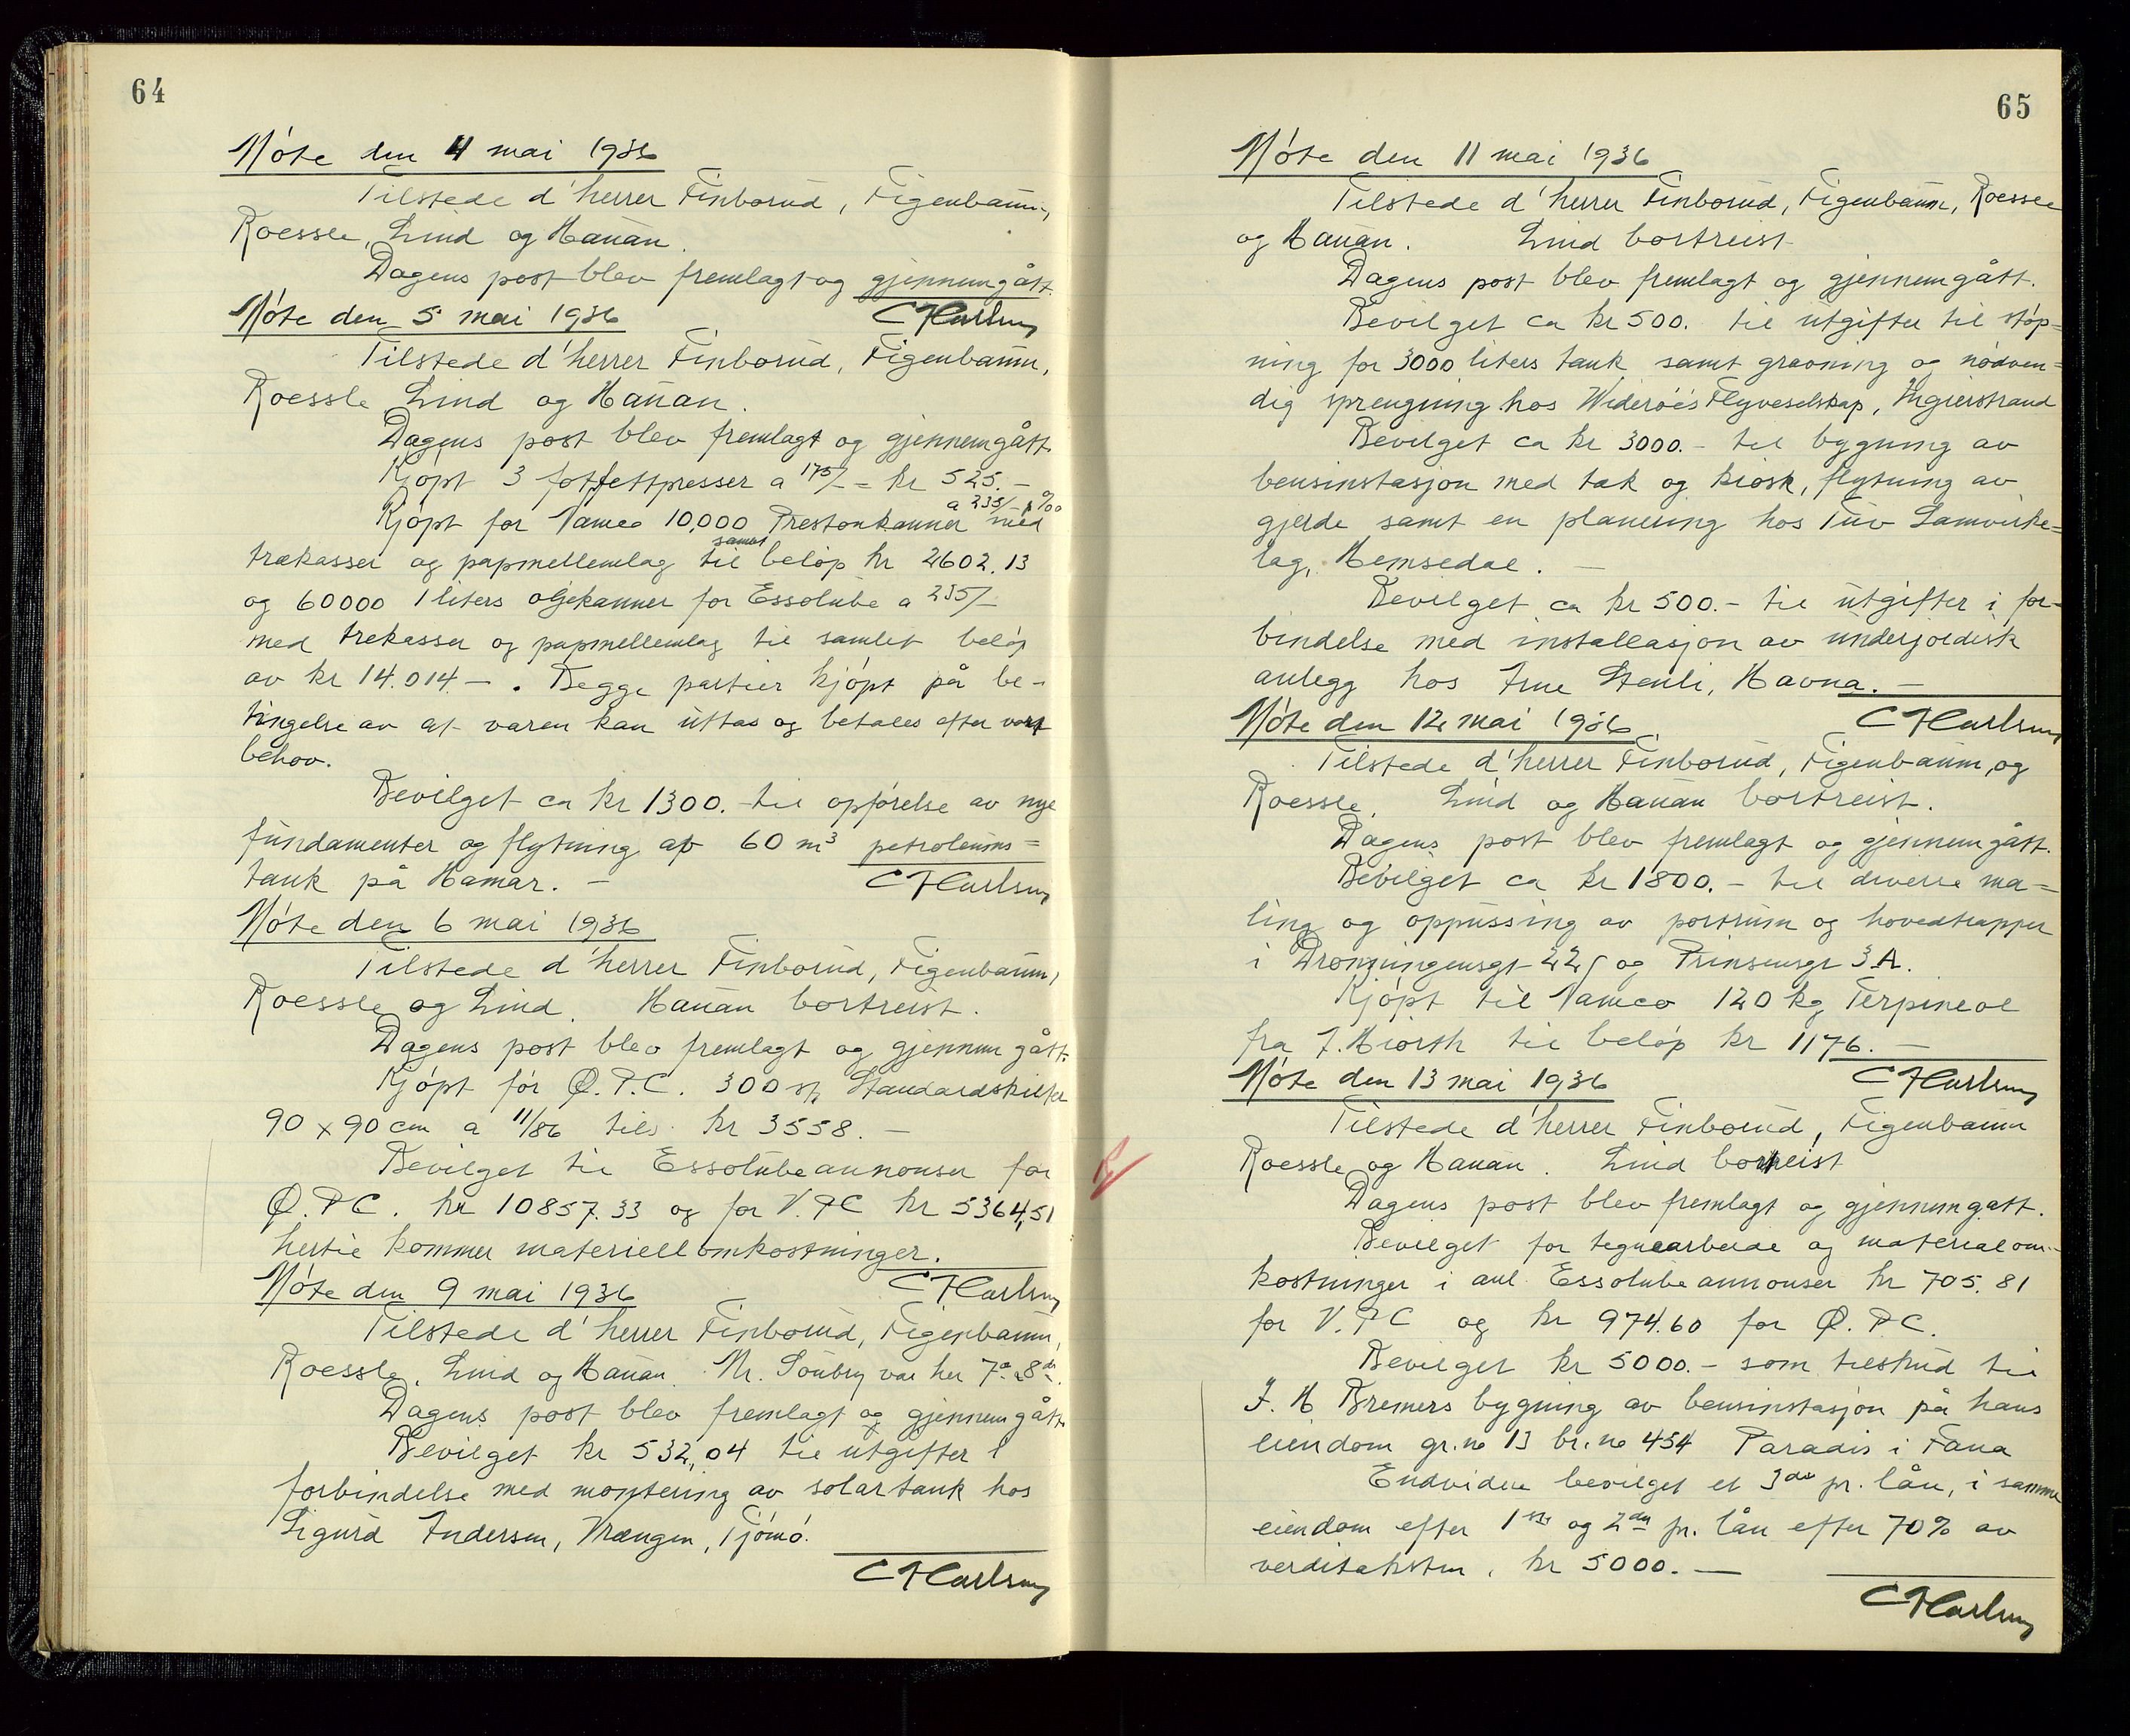 64
Møte den 4 mai 1936
Tilstede d'herrer Finborud, Figenbaum,
Roessle, Lind og Hauan.
Dagens post blev fremlagt og gjennemgått.
Møte den 5 mai 1936
Tilstede d'herrer Finborud, Figenbaum,
Roessle Lind og Hauan.
Dagens post blev fremlagt og gjennemgått.
Kjøpt 3 fotfettpresser a 175/- = kr 525.-
a 235/- p %00
Kjøpt for Vamco 10,000 Prestonkanner med
trækasser og papmellemlag samlet til beløp kr 2602.13
og 60000 1 liters oljekanner for Essolube a 235/-
med trekasser og papmellemlag til samlet beløp
av kr 14.014.- . Begge partier kjøpt på be-
tingelse av at varen kan uttas og betales efter vort
behov.
Bevilget ca kr 1300.- til opførelse av nye
fundamenter og flytning af 60 m³ petroleums=
tank på Hamar. -
Møte den 6 mai 1936
Tilstede d'herrer Finborud, Figenbaum,
Roessle og Lind. Hauan bortreist.
Dagens post blev fremlagt og gjennemgått.
Kjøpt for Ø.P.C. 300 st, Standardskilter
90 x 90 cm a 11/86 tils. kr 3558. -
Bevilget til Essolubeannonser for
Ø.P.C. kr 10857.33 og for V.P.C kr 5364,51
hertil kommer materiellomkostninger.
Møte den 9 mai 1936
Tilstede d'herrer Finborud, Figenbaum,
Roessle, Lind og Hauan. Mr. Soubry var her 7de 8de.
Dagens post blev fremlagt og gjennemgått.
Bevilget kr 532,04 til utgifter i
forbindelse med montering av solartank hos
Sigurd Andersen, Vrængen, Tjømø.
65
Møte den 11 mai 1936
Tilstede d'herrer Finborud, Figenbaum, Roessle
og Hauan. Lind bortreist
Dagens post blev fremlagt og gjennemgått.
Bevilget ca kr 500. til utgifter til støp=
ning for 3000 liters tank samt gravning og nødven=
dig sprengning hos Widerøe's Flyveselskap, Ingierstrand
Bevilget ca kr 3000.- til bygning av
bensinstasjon med tak og kiosk, flytning av
gjerde samt en planering hos Tuv Samvirke=
lag, Hemsedal. -
Bevilget ca kr 500.- til utgifter i for-
bindelse med installasjon av underjordisk
anlegg hos Arne Stenli, Havna. -
Møte den 12 mai 1936
Tilstede d'herrer Finborud, Figenbaum, og
Roessle. Lind og Hauan bortreist.
Dagens post blev fremlagt og gjennemgått.
Bevilget ca kr 1800.- til diverse ma=
ling og oppussing av portrum og hovedtrapper
i Dronningensgt 22, og Prinsensgt 3A.
Kjøpt til Vamco 120 kg Terpineol
fra J. Hiorth til beløp kr 1176. -
Møte den 13 mai 1936
Tilstede d'herrer Finborud, Figenbaum
Roessle og Hauan. Lind bortreist
Dagens post blev fremlagt og gjennemgått.
Bevilget for tegnearbeide og materialom-
kostninger i anl. Essolubeannonser kr 705.81
for V.P.C og kr 974.60 for Ø.P.C.
Bevilget kr 5000.- som tilskud til
J. H. Bremers bygning av bensinstasjon på hans
eiendom gr.no 13 br.no 454 Paradis i Fana
Endvidere bevilget et 3die pr. lån, i samme
eiendom efter 1ste og 2den pr. lån efter 70% av
verditaksten, kr 5000. -